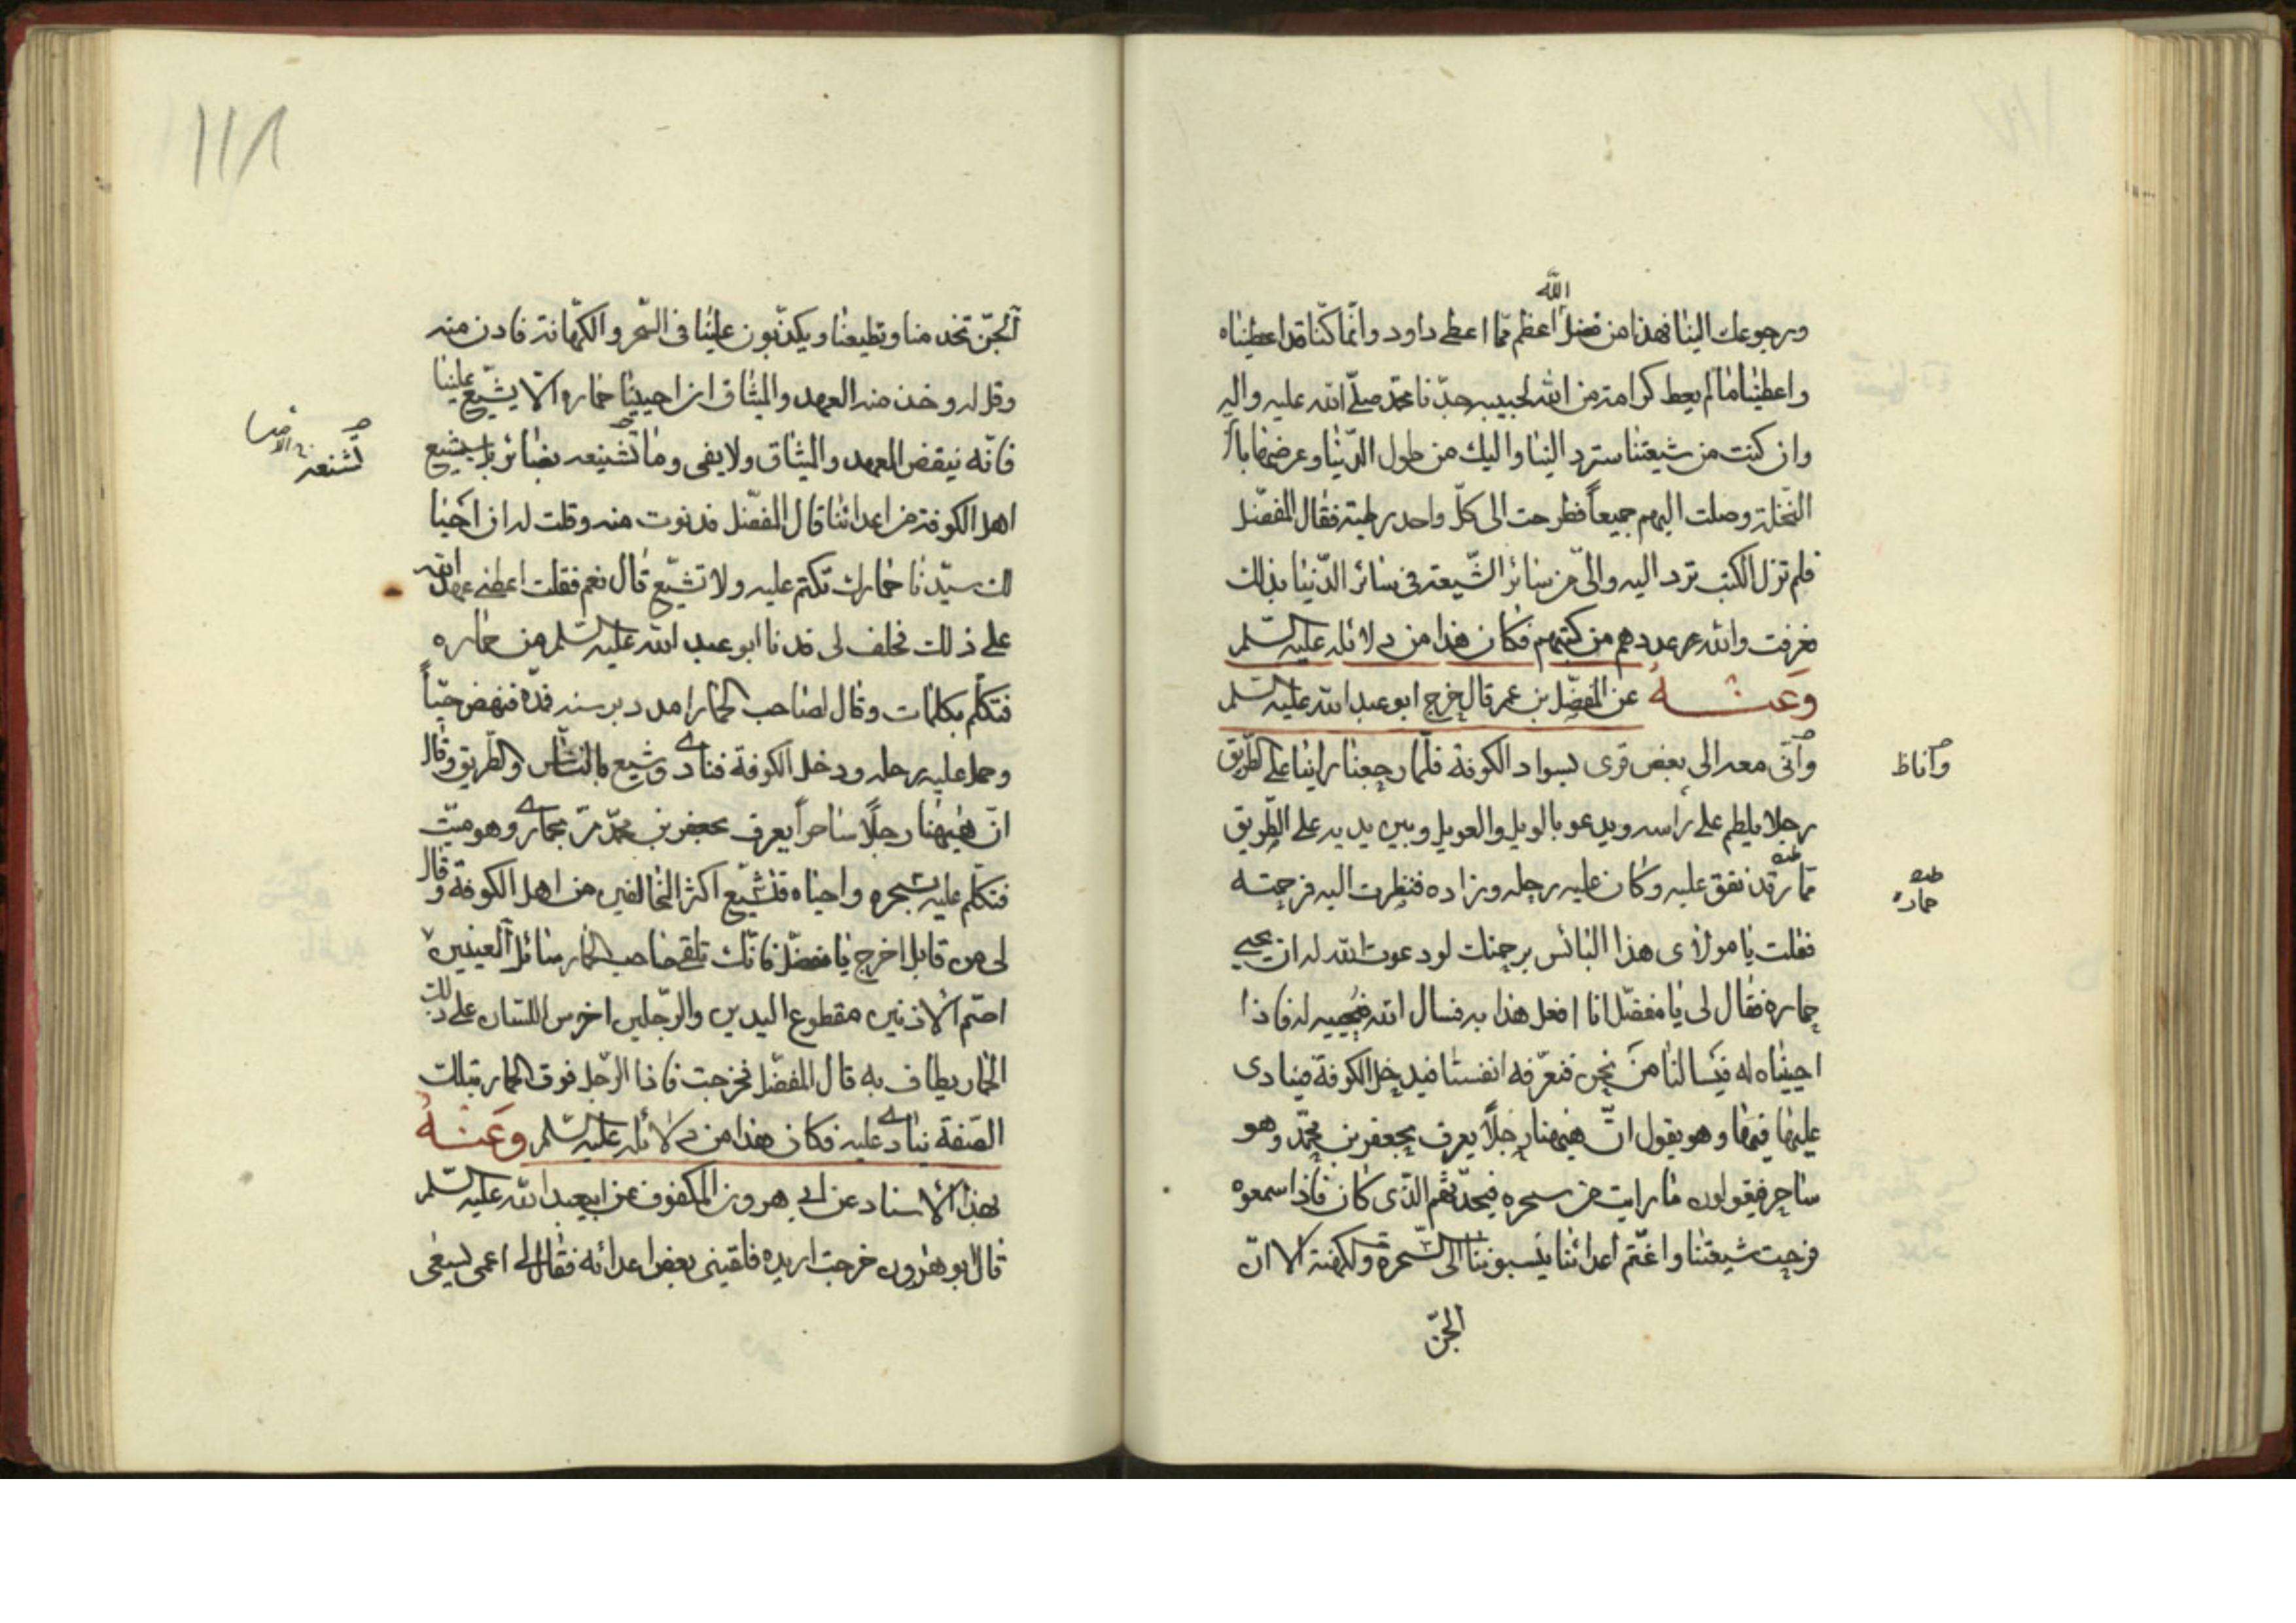 الله
ورجوعك الينا فهذا من فضل اعظم مما اعطى داود وانما كنا قد اعطيناه
واعطينا ما لم يعط كرامة من الله لحبيبه جدنا محمد صلى الله عليه واليه
وان كنت من شيعتنا سترد الينا واليك من طول الدنيا وعرضها بان
النخلة وصلت اليهم جميعاً فطرحت الى كل واحد رطبة فقال المفضل
فلم تزل الكتب ترد اليه والى من سائر الشيعة فى سائر الدنيا بذلك
فعرفت والله عددهم من كتبهم فكان هذا من دلائله عليه السلم
وعنه عن المفضل بن عمر قال خرج ابو عبد الله عليه السلم
وأتى معه الى بعض قرى بسواد الكوفة فلما رجعنا راينا على الطريق
وآناظ
رجلا يلطم على راسه ويدعو بالويل والعويل وبين يديه على الطريق
حمار قد نفق عليه وكان عليه رحله وزاده فنظرت اليه فرحمته
حماره
فقلت يا مولاى هذا البائس برحمتك لو دعوت الله له ان يحيى
حماره فقال لى يا مفضل انا افعل هذا به فسال الله فيحييه له فاذا
احييناه له فيسالنا من نحن فنعرفه انفسنا فيدخل الكوفة فينادى
عليها فيها وهو يقول ان هيهنا رجلاً يعرف بجعفر بن محمد وهو
ساحر فيقولون ما رايت من سحره فيحدثهم الذى كان فاذا سمعوه
فرحت شيعتنا واغتم اعدائنا ينسبوننا الى السحرة ولكهنة الا ان
الجن
118
الجن تخدمنا وتطيعنا ويكذبون علينا فى السحر والكهانة فادن منه
وقل له وخذ منه العهد والميثاق ان احيينا حماره الا يشيع علينا
فانه ينقض العهد والميثاق ولا يفى وما تشنيعه بضائر بل يشيع
تشنعه
اهل الكوفة من اعدائنا قال المفضل فدنوت منه وقلت له ان احيا
لك سيدنا حمارك تكتم عليه ولا تشيع قال نعم فقلت اعطنى عهد الله
على ذلك فحلف لى فدنا ابو عبد الله عليه السلم من حماره
فتكلم بكلمات وقال لصاحب الحمار امدد برسنه فمده فنهض حياً
وحمل عليه رحله ودخل الكوفة فنادى وشيع بالناس والطريق وقال
ان هيهنا رجلاً ساحراً يعرف بجعفر بن محمد مر بحمارى وهو ميت
فتكلم عليه بسحره واحياه فشيع اكثر المخالفين من اهل الكوفة وقال
لى من قابل اخرج يا مفضل فانك تلقى صاحب الحمار سائل العينين
اصم الاذنين مقطوع اليدين والرجلين اخرس اللسان على ذلك
الحمار يطاف به قال المفضل فخرجت فاذا الرجل فوق الحمار بتلك
الصفة ينادى عليه فكان هذا من دلائله عليه السلم وعنه
بهذا الاسناد عن ابى هرون المكفوف عن ابى عبد الله عليه السلم
قال ابو هرون خرجت اريده فلقينى بعض اعدائه فقال لى اعمى يسعى